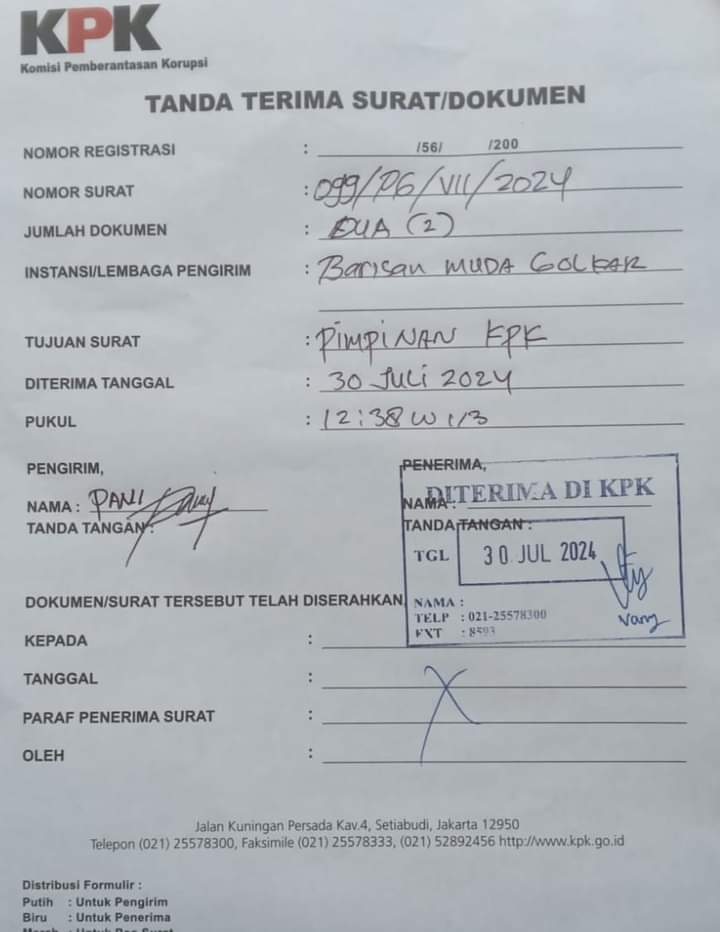 KPK
Komisi Pemberantasan Korupsi
TANDA TERIMA SURAT/DOKUMEN
NOMOR REGISTRASI : /56/ /200
NOMOR SURAT : 099/PG/VII/2024
JUMLAH DOKUMEN : DUA (2)
INSTANSI/LEMBAGA PENGIRIM : Barisan MUDA GOLKAR
TUJUAN SURAT : PIMPINAN KPK
DITERIMA TANGGAL : 30 Juli 2024
PUKUL : 12:38 WIB
PENGIRIM,
NAMA : PANJI
TANDA TANGAN :
PENERIMA,
NAMA :
TANDA TANGAN :
DITERIMA DI KPK
TGL 30 JUL 2024
NAMA :
TELP : 021-25578300
EXT : 8593
DOKUMEN/SURAT TERSEBUT TELAH DISERAHKAN
KEPADA :
TANGGAL :
PARAF PENERIMA SURAT :
OLEH :
Jalan Kuningan Persada Kav.4, Setiabudi, Jakarta 12950
Telepon (021) 25578300, Faksimile (021) 25578333, (021) 52892456 http://www.kpk.go.id
Distribusi Formulir :
Putih : Untuk Pengirim
Biru : Untuk Penerima